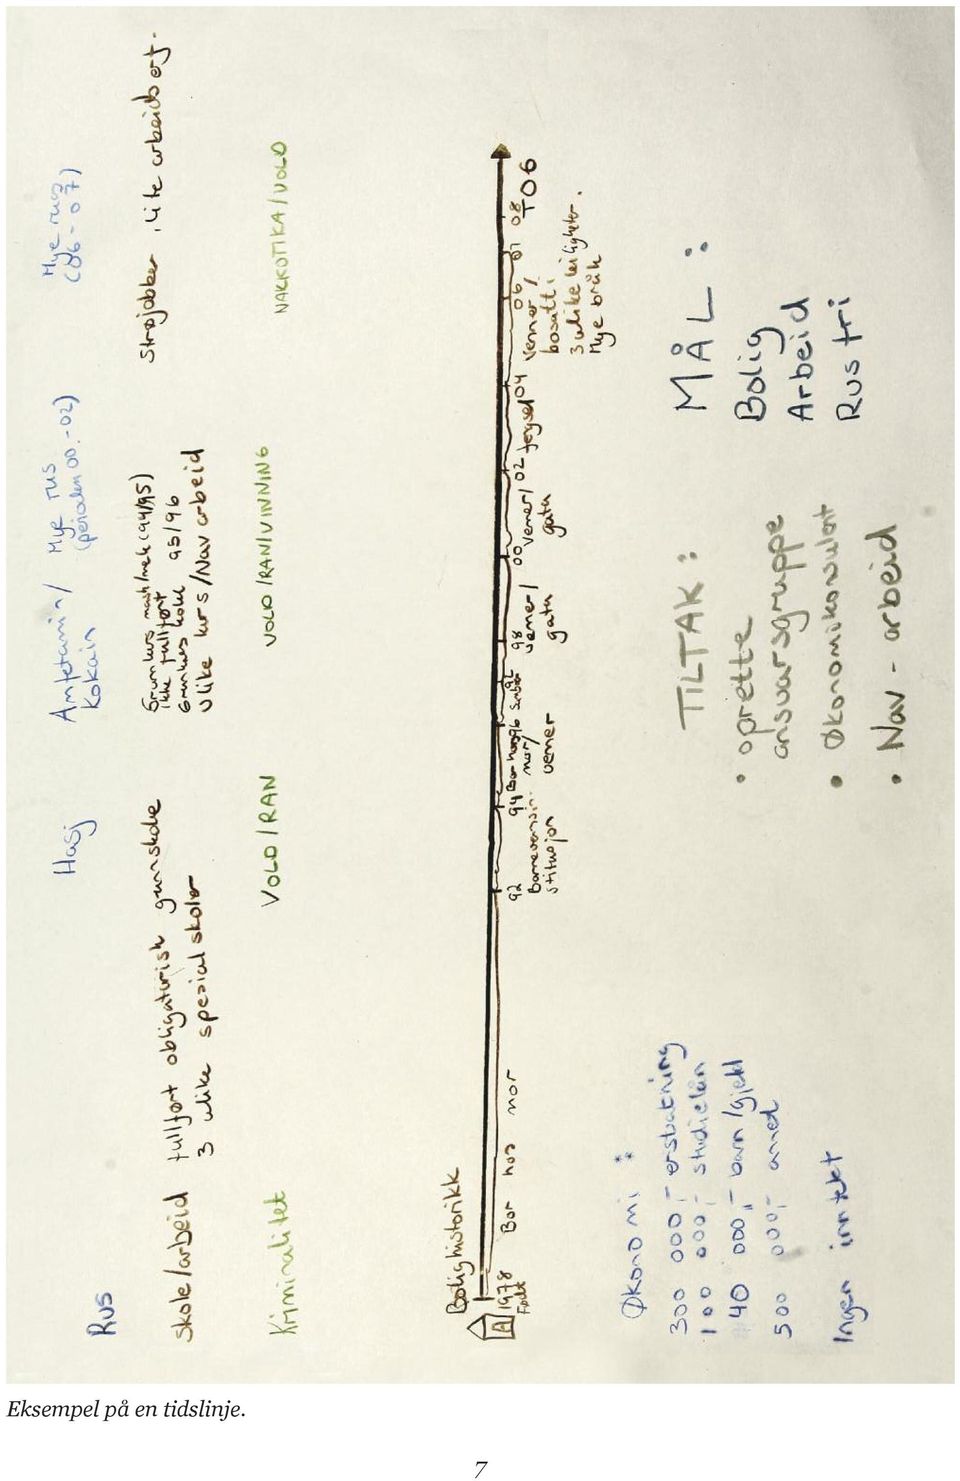 Rus
Hasj
Amfetamin/
Kokain
Mye rus
(perioden 00.-02)
Mye rus
(06-07)
Skole/arbeid
fullført obligatorisk grunnskole
3 ulike spesialskoler
Grunnkurs mek (94/95)
ikke fullført
Grunnkurs 95/96
Ulike kurs/Nav arbeid
Strøjobber, lite arbeidserf.
Kriminalitet
VOLD/RAN
VOLD/RAN/VINNING
NARKOTIKA/VOLD
Bolighistorikk
A
1978
Født
Bor hos mor
92
Barnevernsin-
stitusjon
94
Bor hos
mor/
venner
96
98
venner/
gata
00
venner/
gata
02
fengsel
04
Venner/
bosatt i
3 ulike leiligheter.
Mye bråk
06
07
08
TO6
Økonomi:
300 000,- erstatning
100 000,- studielån
40 000,- barn/gjeld
500 000,- annet
Ingen inntekt
TILTAK:
• oprette
ansvarsgruppe
• Økonomikonsulent
• Nav-arbeid
MÅL:
Bolig
Arbeid
Rusfri
Eksempel på en tidslinje.
7